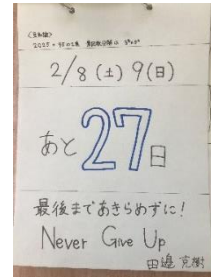 2/8(土)9(日)
あと27日
最後まであきらめずに!
Never Give Up
田邉 克樹